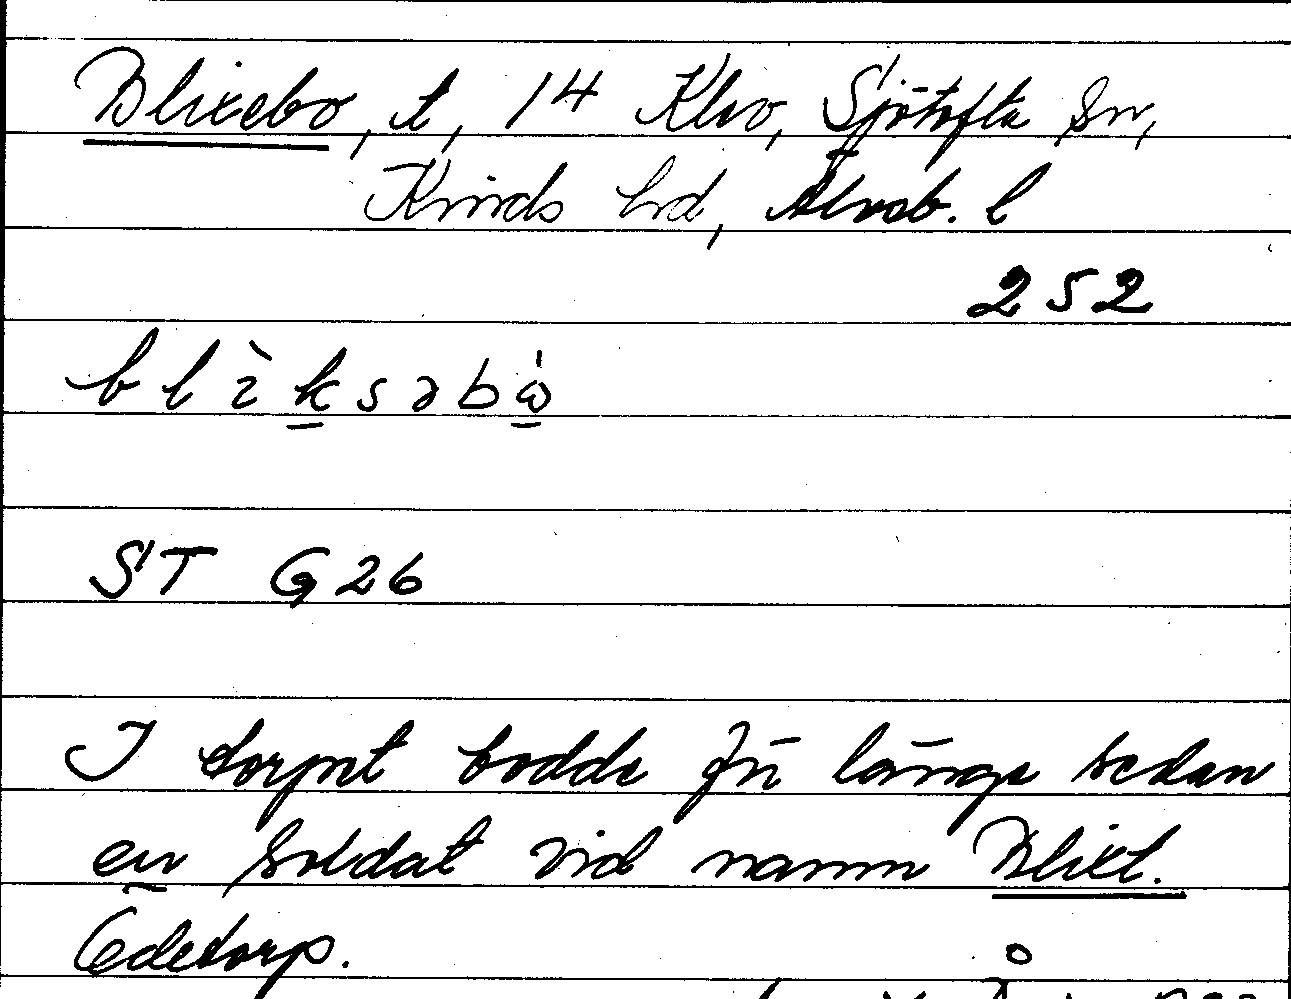 Blixebo, t, 14 Klvo, Sjötofta sn,
Kinds hd, Älvsb. l
252
blìksəbω̇
ST G26
I torpet bodde för länge sedan
en soldat vid namn Blixt.
Edetorp.